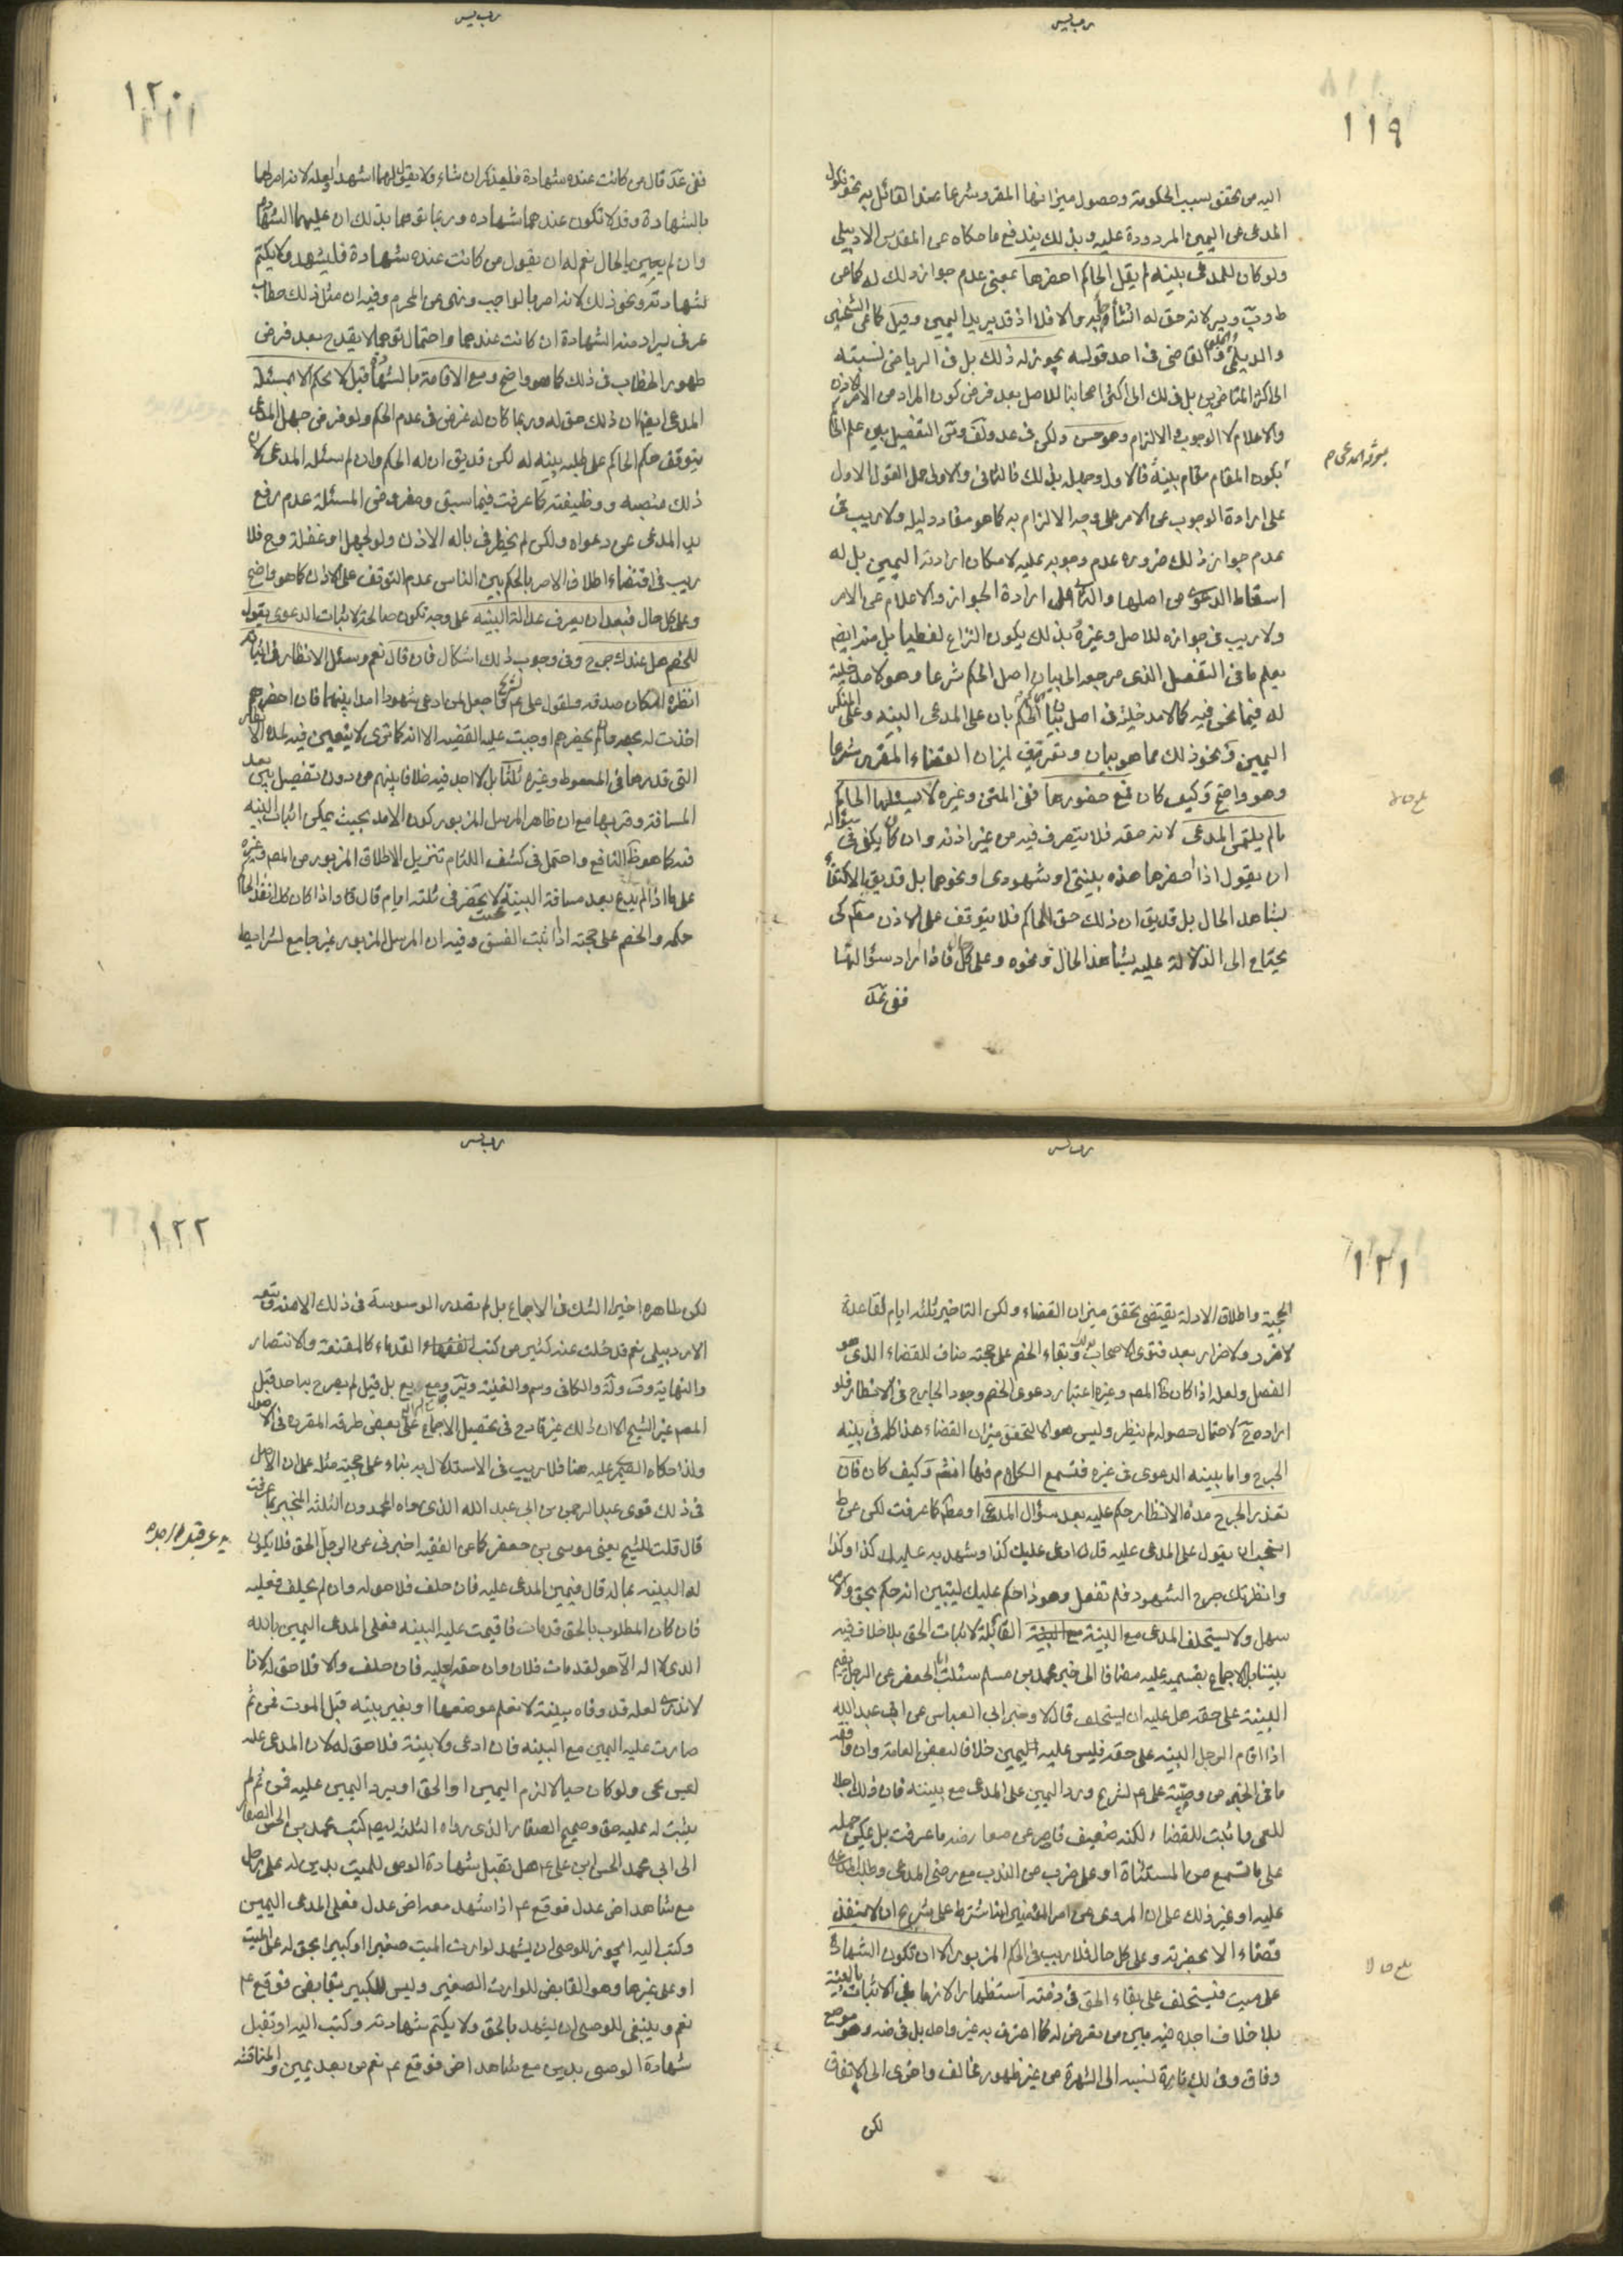 ١١٩
اليه من تحقق بسبب الحكومة وحصول ميزانها المقرر شرعا عند القائل به نحو نكول
المدعى عن اليمين المردودة عليه وبذلك يندفع ما حكاه عن المقدس الاردبيلي
ولو كان للمدعى بينة لم يقل الحاكم احضرها بمعنى عدم جواز ذلك له كما عن
لانه حق له ان شاء والا فلا اذ قد يريد اليمين وقيل كما عن الشيخين
والديلمي والحلبي والقاضى فى احد قوليه يجوز له ذلك بل فى الرياض نسبته
الى اكثر المتاخرين بل فى لك الى اكثر اصحابنا للاصل بعد فرض كون المراد من الامر
والاعلام لا الوجوب والالزام وهو حسن ولكن فى عد ولف وس التفصيل بين علم الحاكم
بكون المقام مقام بينة فالاول وجهله بذلك فالثانى والاولى حمل القول الاول
على ارادة الوجوب من الامر على وجه الالزام به كما هو مفاد دليله ولا ريب فى
عدم جواز ذلك ضرورة عدم وجوبه عليه لامكان ارادته اليمين بل له
اسقاط الدعوى من اصلها والثانى على ارادة الجواز والاعلام من الامر
ولا ريب فى جوازه للاصل وغيره بذلك يكون النزاع لفظيا بل منه ايضا
يعلم ما فى التفصيل الذى مرجعه الى بيان اصل الحكم شرعا وهو لا مدخلية
له فيما نحن فيه كما لا مدخلية فى اصل بيان الحكم بان على المدعى البينة وعلى المنكر
اليمين ونحو ذلك مما هو بيان وتعريف لميزان القضاء المقرر شرعا
وهو واضح وكيف كان فمع حضورها ففى المتن وغيره لا يسئلها الحاكم
ما لم يلتمس المدعى لانه حقه فلا يتصرف فيه من غير اذنه وان كان يكفى فى سؤاله
ان يقول اذا احضرها هذه بينتى او شهودى او نحوهما بل قد يق بالاكتفاء
بشاهد الحال بل قد يق ان ذلك حق الحاكم فلا يتوقف على الاذن كى
يحتاج الى الدلالة عليه بشاهد الحال ونحوه وعلى كل حال فاذا اراد سؤالها
ففى عد
١٢٠
ففى عد قال من كانت عنده شهادة فليذكر ان شاء ولا يقول لهما اشهدا لانه امر لهما
بالشهادة وقد لا تكون عندهما شهادة وربما توهما بذلك ان عليهما الشهادة
وان لم يجبن بالحال نعم له ان يقول من كانت عنده شهادة فليشهد ولا يكتم
شهادته ونحو ذلك لانه امر بالواجب ونهى عن المحرم وفيه ان مثل ذلك خطاب
عرفى يراد منه الشهادة ان كانت عندهما واحتمال توهمهما لا يقدح بعد فرض
ظهور الخطاب فى ذلك كما هو واضح ومع الاقامة بالشهادة قيل لا يحكم الا بمسئلة
المدعى ايضا لان ذلك حق له وربما كان له غرض فى عدم الحكم ولو فرض جهل المدعى
يتوقف حكم الحاكم على طلبه بينه له لكن قد يق ان له الحكم وان لم يسئله المدعى لان
ذلك منصبه ووظيفته كما عرفت فيما سبق ومفروض المسئلة عدم رفع
يد المدعى عن دعواه ولكن لم يخطر فى باله الاذن ولو لجهل او غفلة وح فلا
ريب فى اقتضاء اطلاق الامر بالحكم بين الناس عدم التوقف على الاذن كما هو واضح
وعلى كل حال فبعد ان يعرف عدالة البينة على وجه تكون صالحة لاثبات الدعوى يقول
للخصم هل عندك جرح وفى وجوب ذلك اشكال فان قال نعم وسئل الانظار فى اثباته
انظره لامكان صدقه ولقول على عم لشريح واجعل لمن ادعى شهودا امدا بينهما فان احضرهم
اخذت له بحقه وان لم يحضرهم اوجبت عليه القضية الا انه كما ترى لا يتعين فيه لمدة الانظار
التى قدرها فى المبسوط وغيره ثلثا بل لا اجد فيه خلافا بينهم من دون تفصيل بين بعد
المسافة وقربها مع ان ظاهر المرسل المزبور كون الامد بحيث يمكن اثبات البينة
فيه كما هو ظ النافع واحتمل فى كشف اللثام تنزيل الاطلاق المزبور من المصم وغيره
على ما اذا لم يدع بعد مسافة البينة بحيث لا يحضر فى ثلثة ايام قال واذا كان كك انفذ الحاكم
حكمه والخصم على حجته اذا ثبت الفسق وفيه ان المرسل المزبور غير جامع لشرايط
١٢١
الحجية واطلاق الادلة يقتضى تحقق ميزان القضاء ولكن التاخير ثلثة ايام لقاعدة
لا ضرر ولا ضرار بعد فتوى الاصحاب بذلك وبقاء الخصم على حجته مناف للقضاء الذى هو
الفصل ولعله لذا كان ظ المصم وغيره اعتبار دعوى الخصم وجود الجارح فى الانتظار فلو
اراده ح لاحتمال حصوله لم ينظر وليس هو الا لتحقق ميزان القضاء هذا كله فى بينة
الجرح واما بينة الدعوى فى غيره فتسمع الكلام فيها انشم وكيف كان فان
تعذر الجرح مدة الانظار حكم عليه بعد سؤال المدعى او مطم كما عرفت لكن عن ط
استحباب ان يقول على المدعى عليه قد ادعى عليك كذا وشهد به عليك كذا وكذا
وانظرتك جرح الشهود فلم تفعل وهو ذا احكم عليك ليتبين انه حكم بحق والامر
سهل ولا يستحلف المدعى مع البينة القابلة لاثبات الحق بلا خلاف فيه
بيننا بل الاجماع بقسميه عليه مضافا الى خبر محمد بن مسلم سئلت ابا جعفر عن الرجل يقيم
البينة على حقه هل عليه ان يستحلف قال لا وخبر ابى العباس عن ابى عبد الله
اذا اقام الرجل البينة على حقه فليس عليه اليمين خلافا لبعض العامة وان وافقه
ما فى الخبر من وصية على عم لشريح ورد اليمين على المدعى مع بينته فان ذلك اجلا
للعمى واثبت للقضاء لكنه ضعيف قاصر عن معارضة ما عرفت بل يمكن حمله
على ما تسمع من المستثناة او على ضرب من الندب مع رضى المدعى وطلب المدعى
عليه او غير ذلك على ان المروى عن امير المؤمنين انه اشترط على شريح ان لا ينفذ
قضاء الا بحضرته وعلى كل حال فلا ريب فى الحكم المزبور الا ان تكون الشهادة
على ميت فيستحلف على بقاء الحق فى ذمته استظهارا لازما فى الاثبات بالبينة
بلا خلاف اجده فيه بين من تعرض له كما اعترف به غير واحد بل فى ضه وهو موضع
وفاق وفى لك تارة نسبه الى الشهرة من غير ظهور مخالف واخرى الى الاتفاق
لكن
١٢٢
لكن ظاهره اخيرا الشك فى الاجماع بل لم يقدر الوسوسة فى ذلك الا منه وتبعه
الاردبيلى نعم قد خلت عنه كثير من كتب الفقهاء القدماء كالمقنعة والانتصار
والنهاية وف والكافى وسم والغنية وئر ويع بل قيل لم يصرح به احد قبل
المصم غير الشيخ الا ان ذلك غير قادح فى تحصيل الاجماع على بعض طرقه المقررة فى الاصول
ولذا حكاه عليه هنا فلا ريب فى الاستدلال به بناء على حجية مثله على ان الاصل
فى ذلك قوى عبد الرحمن بن ابى عبد الله الذى رواه المحمدون الثلثة المنجبر بما عرفت
قال قلت للشيخ يعنى موسى بن جعفر كما عن الفقيه اخبرنى عن الرجل الحق فلا يكون
له البينة بماله قال فيمين المدعى عليه فان حلف فلا حق له وان لم يحلف فعليه
فان كان المطلوب بالحق قد مات فاقيمت عليه البينة فعلى المدعى اليمين بالله
الذى لا اله الا هو لقد مات فلان وان حقه لعليه فان حلف والا فلا حق له
لانا لا ندرى لعله قد وفاه ببينة لا نعلم موضعها او بغير بينة قبل الموت فمن ثم
صارت عليه اليمين مع البينة فان ادعى ولا بينة فلا حق له لان المدعى عليه
ليس بحى ولو كان حيا لالزم اليمين او الحق او يرد اليمين عليه فمن ثم لم
يثبت له عليه حق وصحيح الصفار الذى رواه الثلثة ايضم كتب محمد بن الحسن الصفار
الى ابى محمد الحسن ابن على عم هل تقبل شهادة الوصى للميت بدين له على رجل
مع شاهد اخر عدل فوقع عم اذا شهد معه اخر عدل فعلى المدعى اليمين
وكتب اليه ايجوز للوصى ان يشهد لوارث الميت صغيرا او كبيرا بحق له على الميت
او على غيرها وهو القابض للوارث الصغير وليس للكبير بقابض فوقع عم
نعم وينبغى للوصى ان يشهد بالحق ولا يكتم شهادته وكتب اليه او تقبل
شهادة الوصى بدين مع شاهد اخر فوقع عم نعم من بعد يمين والمناقشة